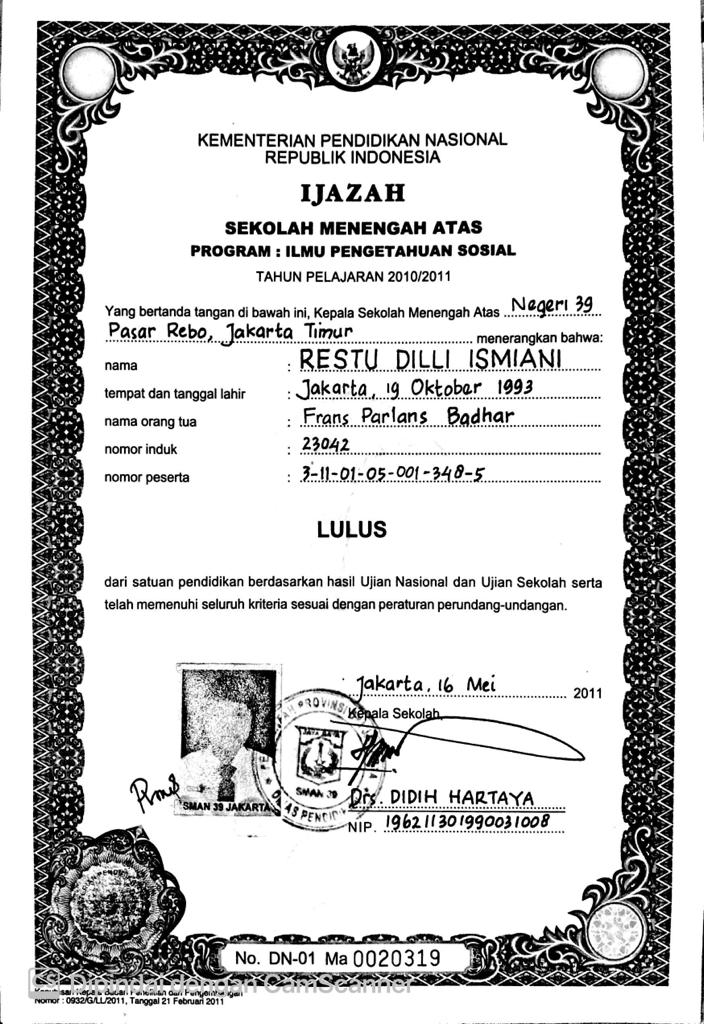 KEMENTERIAN PENDIDIKAN NASIONAL
REPUBLIK INDONESIA
IJAZAH
SEKOLAH MENENGAH ATAS
PROGRAM : ILMU PENGETAHUAN SOSIAL
TAHUN PELAJARAN 2010/2011
Yang bertanda tangan di bawah ini, Kepala Sekolah Menengah Atas Negeri 39
Pasar Rebo, Jakarta Timur menerangkan bahwa:
nama : RESTU DILLI ISMIANI
tempat dan tanggal lahir : Jakarta, 19 Oktober 1993
nama orang tua : Frans Parlans Badhar
nomor induk : 23042
nomor peserta : 3-11-01-05-001-348-5
LULUS
dari satuan pendidikan berdasarkan hasil Ujian Nasional dan Ujian Sekolah serta
telah memenuhi seluruh kriteria sesuai dengan peraturan perundang-undangan.
Jakarta, 16 Mei 2011
Kepala Sekolah,
SMAN 39
SMAN 39 JAKARTA
Drs. DIDIH HARTAYA
NIP. 196211301990031008
No. DN-01 Ma 0020319
Dipindai dengan CamScanner
Nomor : 0932/G/LL/2011, Tanggal 21 Februari 2011